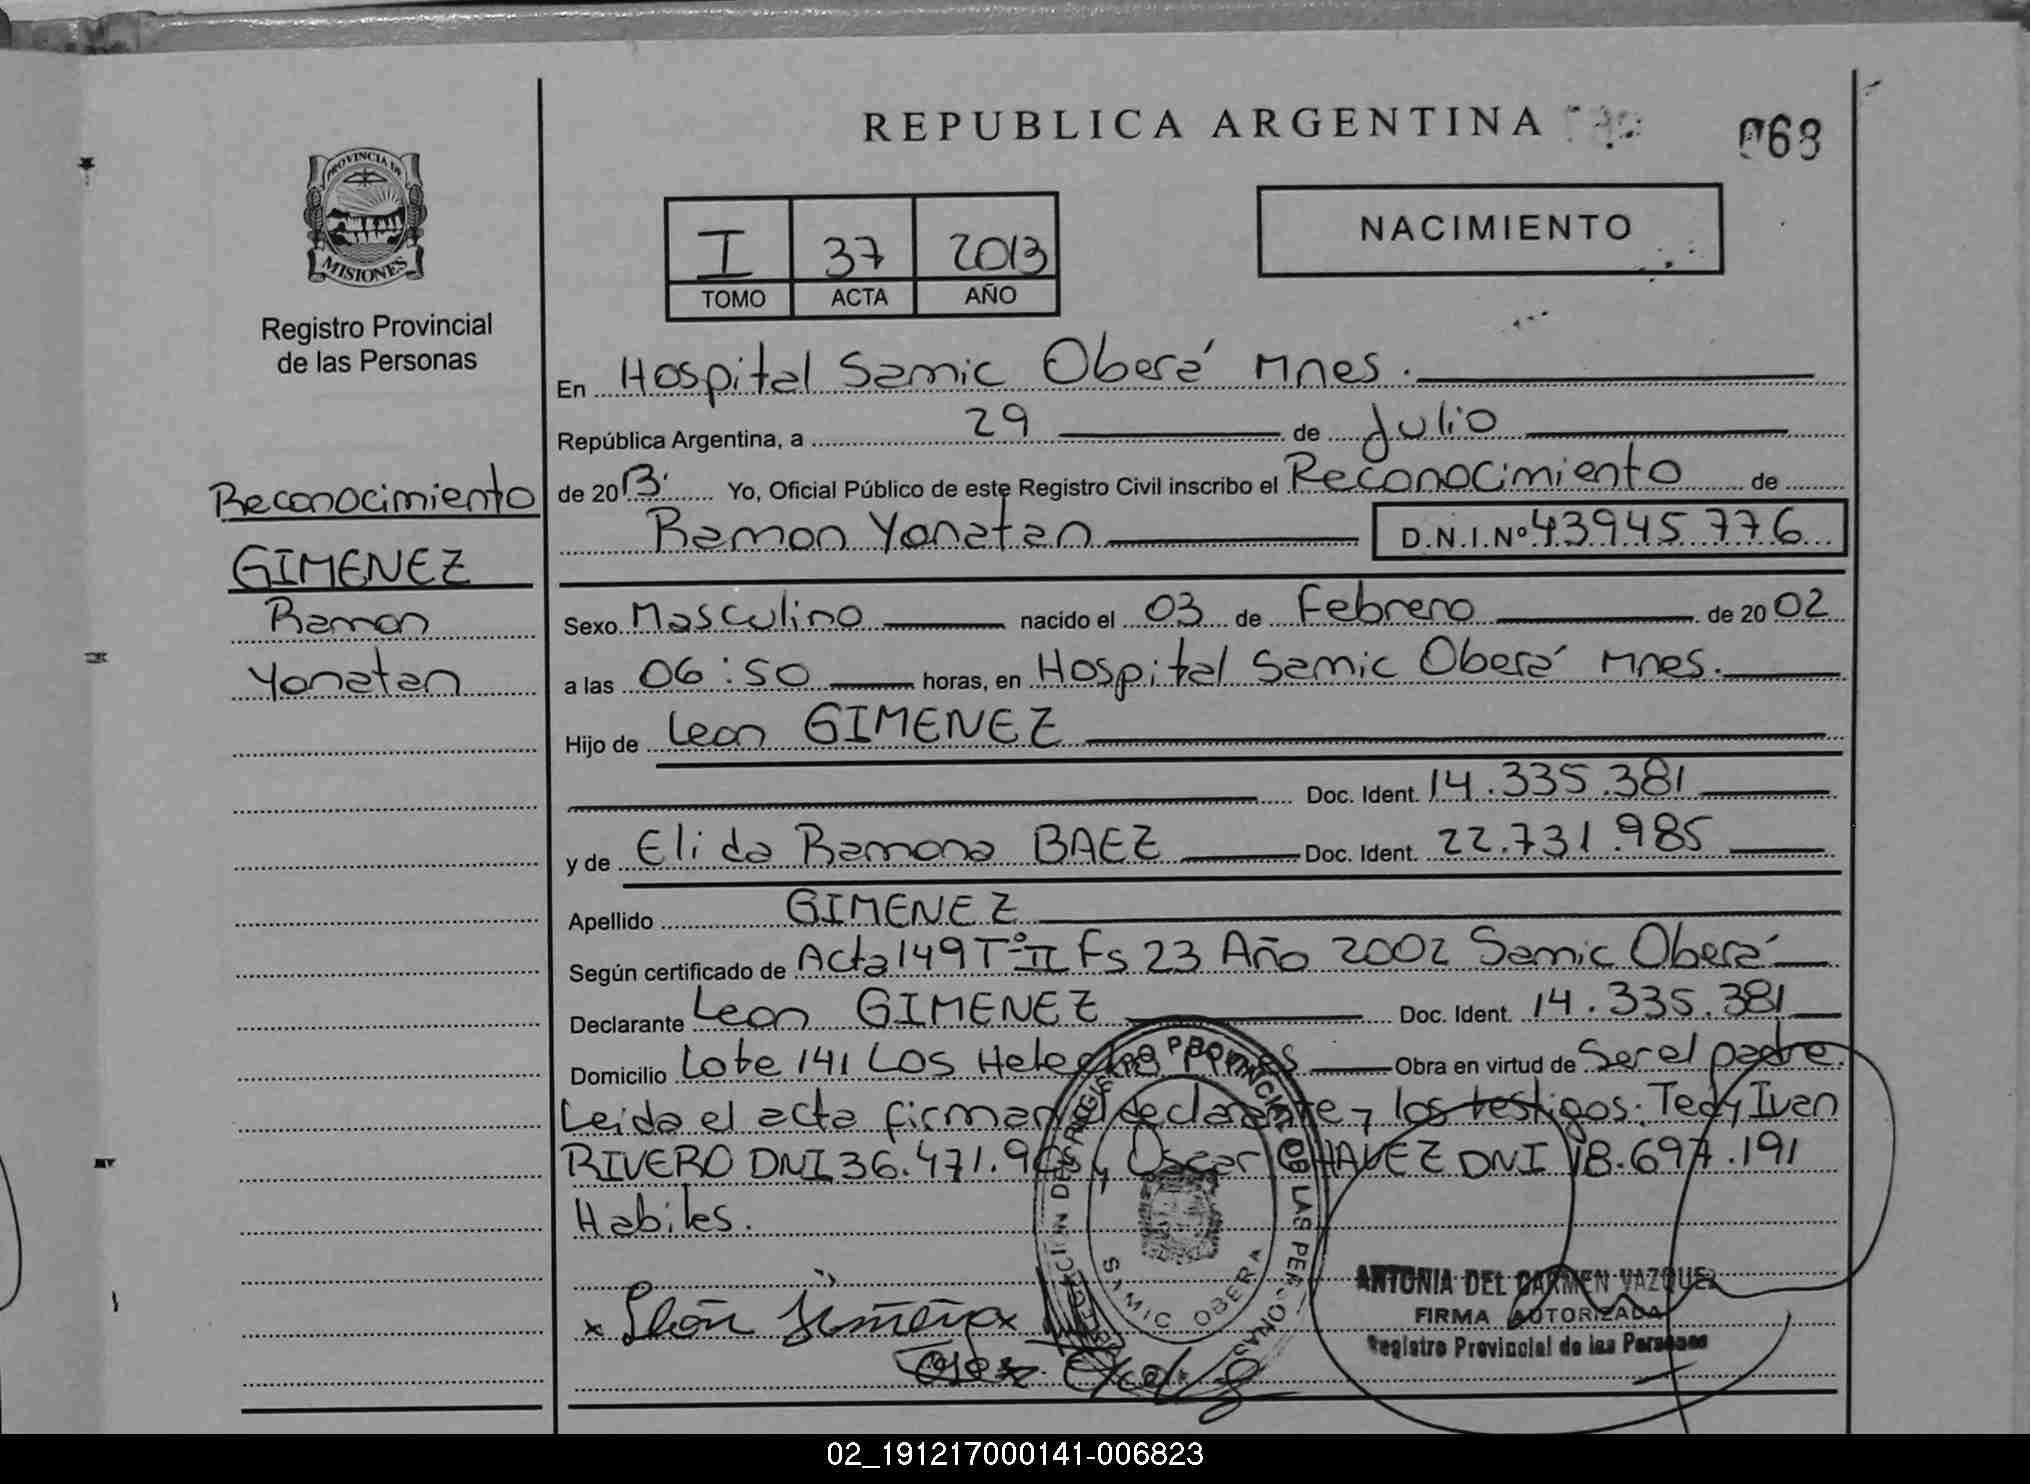 REPUBLICA ARGENTINA
068
PROVINCIA DE
MISIONES
Registro Provincial
de las Personas
I 37 2013
TOMO ACTA AÑO
NACIMIENTO
En Hospital Samic Oberá Mnes.
República Argentina, a 29 de Julio
de 2013. Yo, Oficial Público de este Registro Civil inscribo el Reconocimiento de
Ramon Yonatan D.N.I.Nº 43945776
Reconocimiento
GIMENEZ
Ramon
Yonatan
Sexo Masculino nacido el 03 de Febrero de 2002
a las 06:50 horas, en Hospital Samic Oberá Mnes.
Hijo de Leon GIMENEZ
Doc. Ident. 14.335.381
y de Elida Ramona BAEZ Doc. Ident. 22.731.985
Apellido GIMENEZ
Según certificado de Acta 149 Tº II Fs 23 Año 2002 Samic Oberá
Declarante Leon GIMENEZ Doc. Ident. 14.335.381
Domicilio Lote 141 Los Helechos Obra en virtud de Ser el padre.
Leida el acta firman el declarante y los testigos: Tedy Ivan
RIVERO DNI 36.471.9 y Oscar CHAVEZ DNI 18.697.191
Habiles.
REGISTRO PROVINCIAL DE LAS PERSONAS
SAMIC OBERA
ANTONIA DEL CARMEN VAZQUEZ
FIRMA AUTORIZADA
Registro Provincial de las Personas
02_191217000141-006823